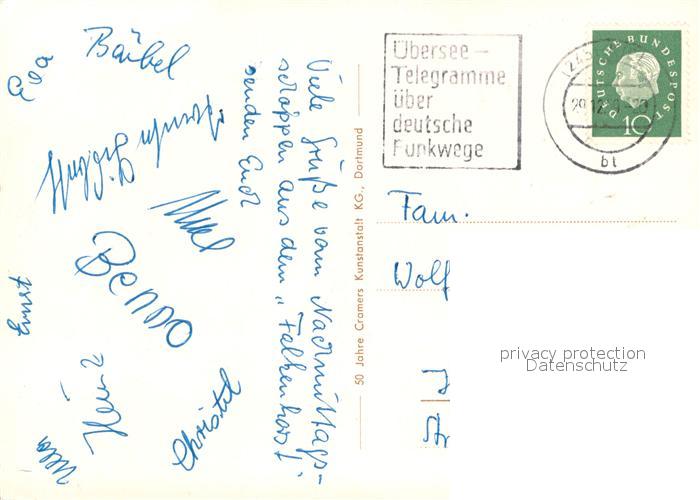 Bärbel
Viele Grüße vom Nachmittags-
schoppen aus dem „Falkenhorst
senden Euch
Benno
Ernst
Heinz
Christel
50 Jahre Cramers Kunstanstalt KG., Dortmund
Übersee-
Telegramme
über
deutsche
Funkwege
DEUTSCHE BUNDESPOST
10
bt
Fam.
Wolf
Str
privacy protection
Datenschutz